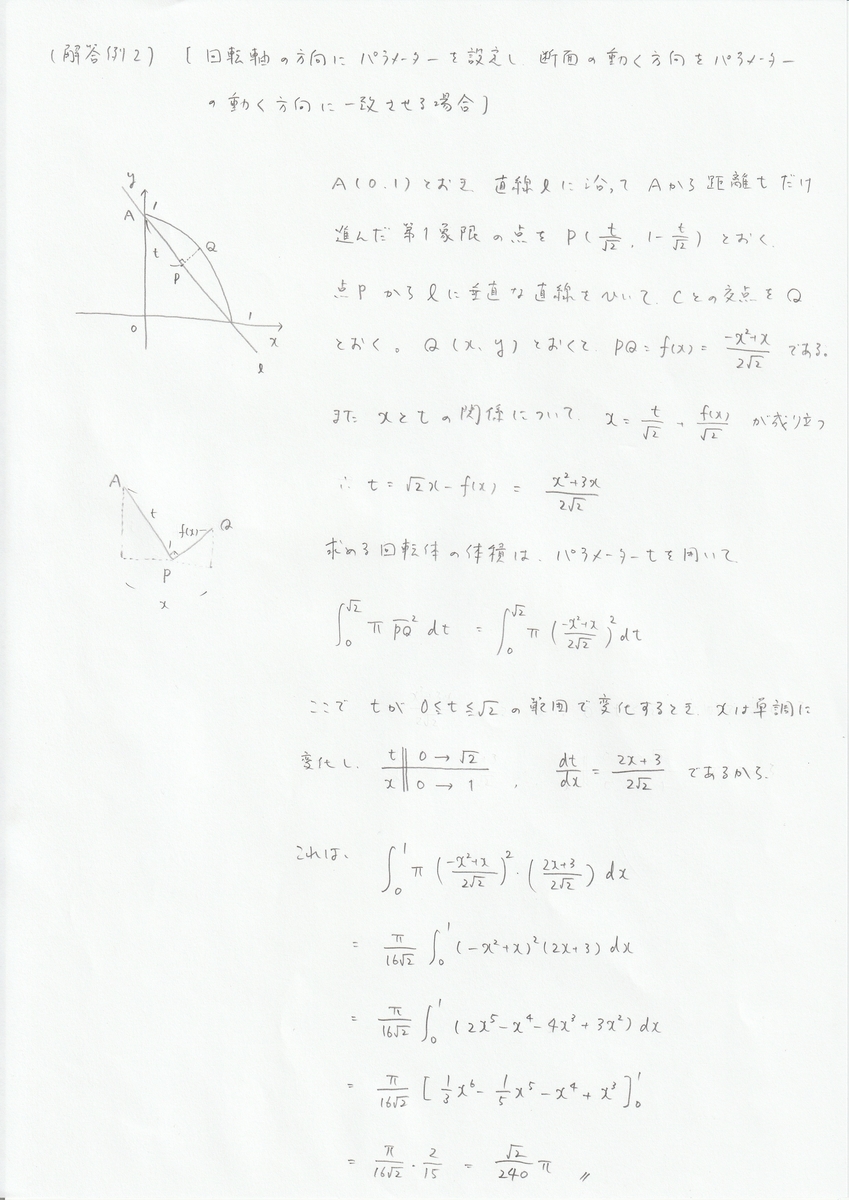 (解答例2) [回転軸の方向にパラメーターを設定し、断面の動く方向をパラメーター
の動く方向に一致させる場合]
y
A
1
t
Q
P
0
1
x
l
A(0,1)とおき、直線lに沿って Aから距離tだけ
進んだ第1象限の点を P(t/√2, 1-t/√2) とおく。
点Pからlに垂直な直線をひいて、Cとの交点をQ
とおく。Q(x、y)とおくと、PQ=f(x)=(-x²+x)/(2√2) である。
また xとtの関係について、x=t/√2+f(x)/√2 が成り立つ
A
t
f(x)
Q
P
x
∴ t=√2x-f(x) = (x²+3x)/(2√2)
求める回転体の体積は、パラメーターtを用いて、
∫₀^√2 π PQ² dt = ∫₀^√2 π((-x²+x)/(2√2))² dt
ここで tが 0≦t≦√2 の範囲で変化するとき、xは単調に
変化し、 t || 0→√2
x || 0→1 , dt/dx = (2x+3)/(2√2) であるから、
これは、 ∫₀¹ π((-x²+x)/(2√2))²・((2x+3)/(2√2)) dx
= π/(16√2) ∫₀¹ (-x²+x)²(2x+3) dx
= π/(16√2) ∫₀¹ (2x⁵-x⁴-4x³+3x²) dx
= π/(16√2) [1/3 x⁶ - 1/5 x⁵ - x⁴ + x³]₀¹
= π/(16√2)・2/15 = √2/240 π 〃